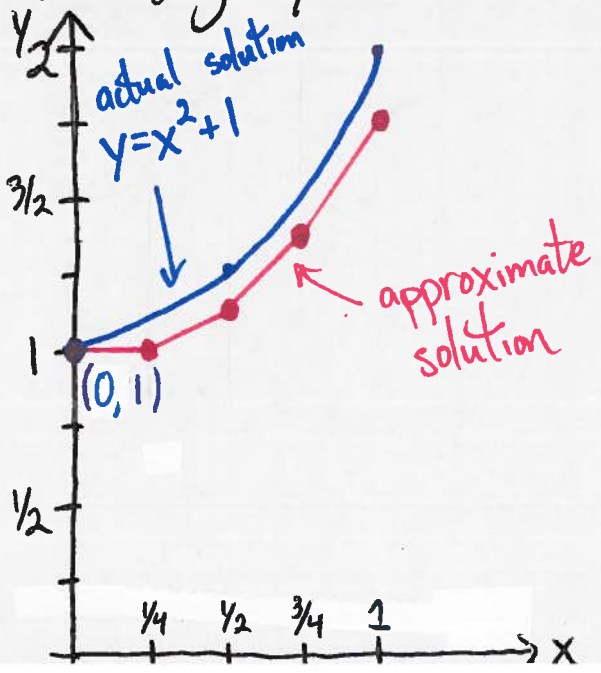 y
2
actual solution
y=x²+1
3/2
approximate
solution
1
(0, 1)
1/2
1/4 1/2 3/4 1
x